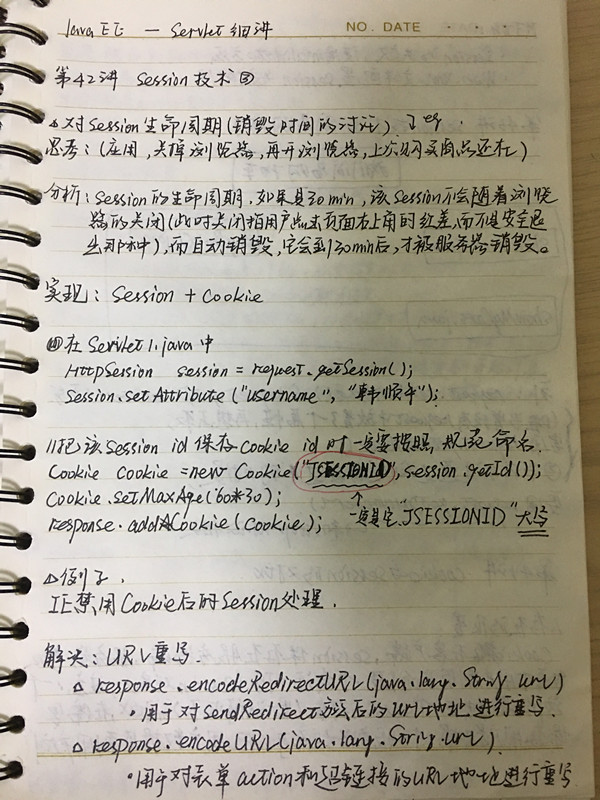 Java EE — Servlet 细讲 NO. DATE
第42讲 Session技术④
△对Session生命周期(销毁时间的讨论) 了eg.
思考:(应用,关掉浏览器,再开浏览器,上次购买商品还在)
分析:Session的生命周期,如果是30min,该Session不会随着浏览
器的关闭(此时关闭指用户点击页面右上角的红差,而不是安全退
出那种),而自动销毁,它会到30min后,才被服务器销毁。
实现:Session + Cookie
在Servlet1.java中
HttpSession session = request.getSession();
Session.setAttribute("username", "韩顺平");
//把该Session id 保存Cookie id时一定要按照规范命名.
Cookie cookie = new Cookie("JSESSIONID", session.getId());
Cookie.setMaxAge(60*30);
response.addCookie(cookie);
一定是它"JSESSIONID"大写
△例子.
IE禁用Cookie后的Session处理.
解决:URL重写.
△ response.encodeRedirectURL(java.lang.String url)
·用于对sendRedirect方法后的url地址进行重写.
△ response.encodeURL(java.lang.String.url)
·用于对表单action和超链接的URL地址进行重写